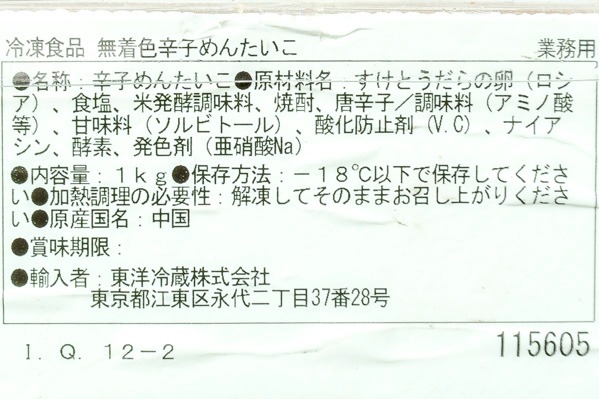 冷凍食品 無着色辛子めんたいこ 業務用
●名称：辛子めんたいこ●原材料名：すけとうだらの卵（ロシ
ア）、食塩、米発酵調味料、焼酎、唐辛子／調味料（アミノ酸
等）、甘味料（ソルビトール）、酸化防止剤（V.C）、ナイア
シン、酵素、発色剤（亜硝酸Na）
●内容量：1kg●保存方法：－18℃以下で保存してくださ
い●加熱調理の必要性：解凍してそのままお召し上がりくださ
い●原産国名：中国
●賞味期限：
●輸入者：東洋冷蔵株式会社
東京都江東区永代二丁目37番28号
I．Q．12－2 115605